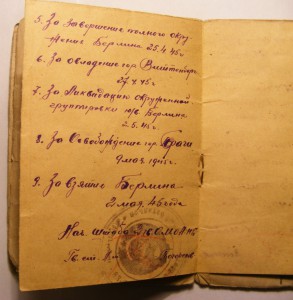 5. За Завершение полного окру-
жение Берлина 25.4.45г.
6. За овладение гор.
27.4.45г.
7. За Ликвидацию окруженной
группировки Берлина
2.5.45г.
8. За Освобождение гор Прага
9 мая 1945г.
9. За взятие Берлина.
2 мая 45 года
Нач штаба
Гв. ст.